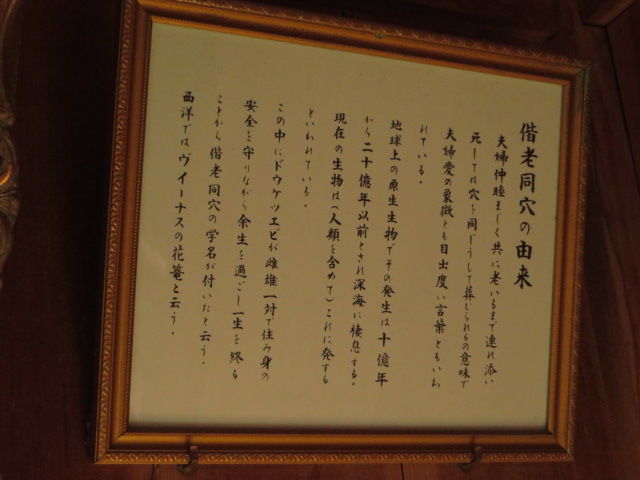 偕老同穴の由来
夫婦仲睦まじく共に老いるまで連れ添い
死しては穴を同じうして葬じられるの意味で
夫婦愛の象徴とも目出度い言葉ともいわ
れている。
地球上の原生生物でその発生は十億年
から二十億年以前とされ深海に棲息する。
現在の生物は(人類を含めて)これに発する
といわれている。
この中にドウケツエビが雌雄一対で住み身の
安全を守りながら余生を過ごし一生を終る
ことから偕老同穴の学名が付いたと云う。
西洋ではヴイーナスの花篭と云う。